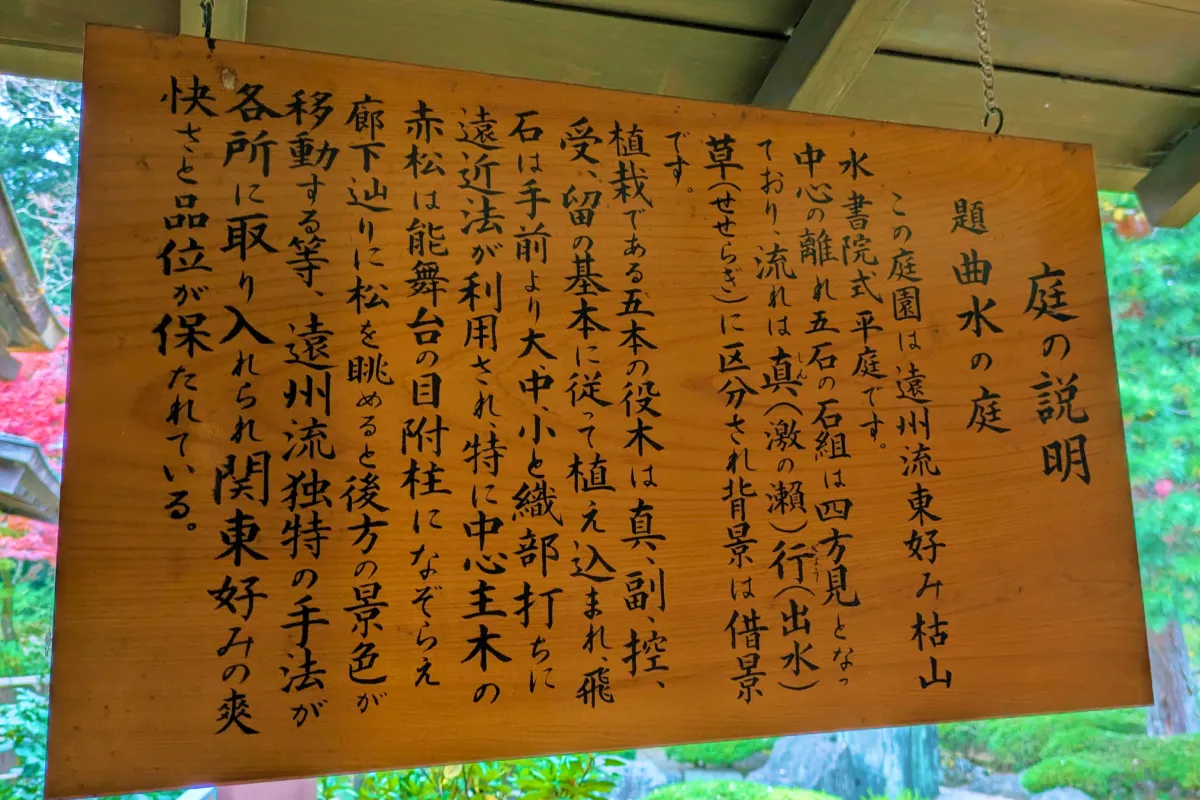 庭の説明
題 曲水の庭
この庭園は遠州流東好み枯山
水書院式平庭です。
中心の離れ五石の石組は四方見となっ
ており、流れは真(激の瀬)行(出水)
しん
ぎょう
草(せせらぎ)に区分され背景は借景
です。
植栽である五本の役木は真、副、控、
受、留の基本に従って植え込まれ、飛
石は手前より大、中、小と織部打ちに
遠近法が利用され、特に中心主木の
赤松は能舞台の目附柱になぞらえ
廊下辿りに松を眺めると後方の景色が
移動する等、遠州流独特の手法が
各所に取り入れられ関東好みの爽
快さと品位が保たれている。